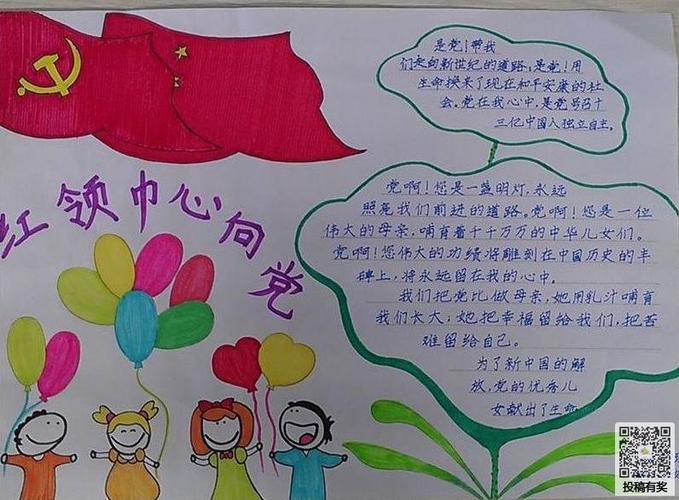 红领巾心向党
是党!带我
们走向新世纪的道路,是党!用
生命换来了现在和平安康的社
会。党在我心中,是党号召十
三亿中国人独立自主。
党啊!您是一盏明灯,永远
照亮我们前进的道路。党啊!您是一位
伟大的母亲,哺育着千千万万的中华儿女们。
党啊!您伟大的功绩将雕刻在中国历史的丰
碑上,将永远留在我的心中。
我们把党比做母亲,她用乳汁哺育
我们长大;她把幸福留给我们,把苦
难留给自己。
为了新中国的解
放,党的优秀儿
女献出了生命
投稿有奖